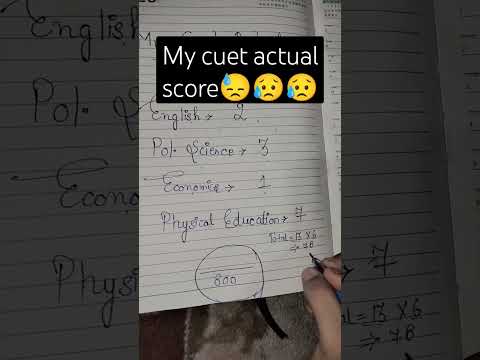 My cuet actual
score😓😥😥
English → 2
Pol. Science → 3
Economics → 1
Physical Education → 7
Total = 13 × 6
⇒ 78
800